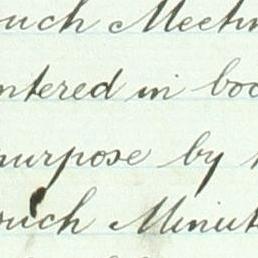 such Meetin
ntered in boo
purpose by t
such Minut